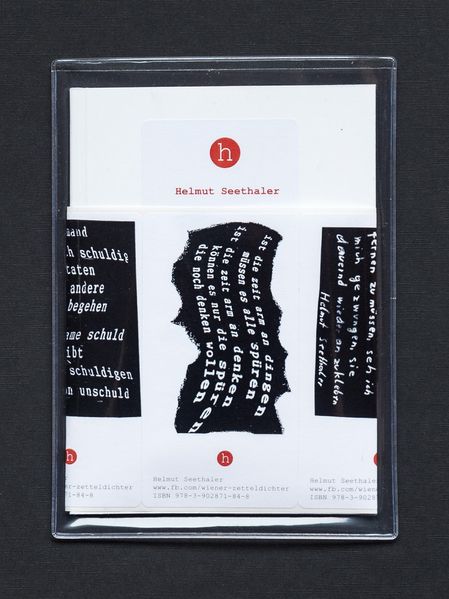 h
Helmut Seethaler
mand
ch schuldig
taten
andere
begehen
ame schuld
ibt
schuldigen
on unschuld
h
er-zetteldichter
71-84-8
ist die zeit arm an dingen
müssen es alle spüren
ist die zeit arm an denken
können es nur die spüren
die noch denken wollen
h
Helmut Seethaler
www.fb.com/wiener-zetteldichter
ISBN 978-3-902871-84-8
fernen zu müssen, seh ich
mich gezwungen, sie
dauernd wieder anzukleben
Helmut Seethaler
h
Helmut Seethaler
www.fb.com/wiene
ISBN 978-3-90287